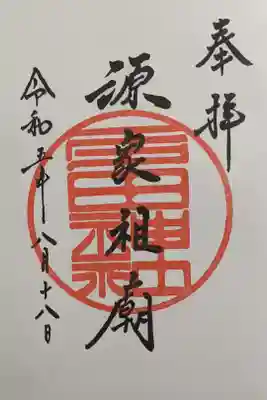 奉拝
源家祖廟
令和五年八月十八日